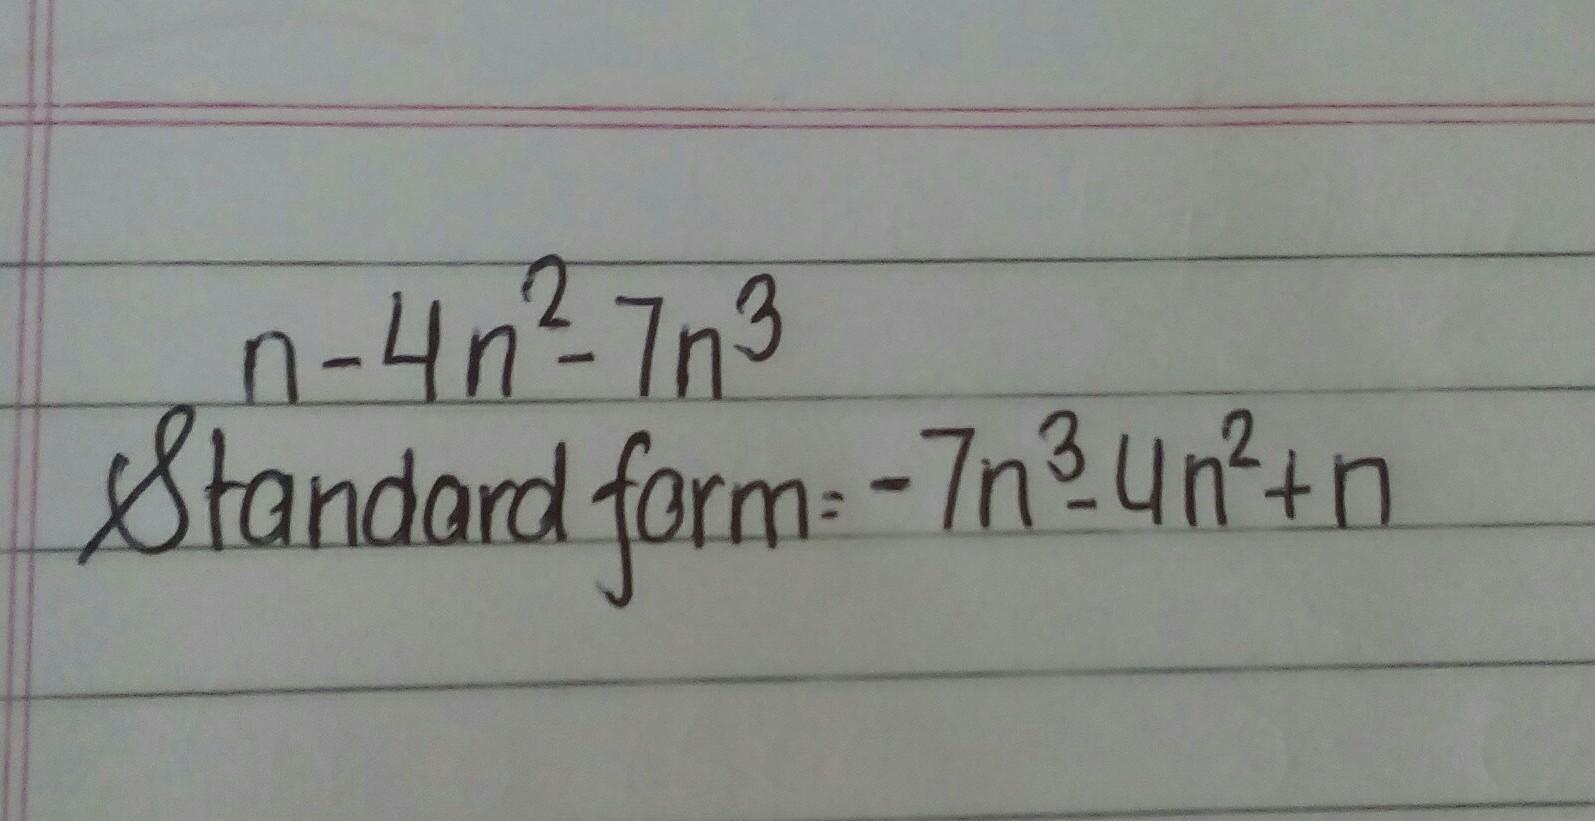 n-4n²-7n³
Standard form=-7n³-4n²+n